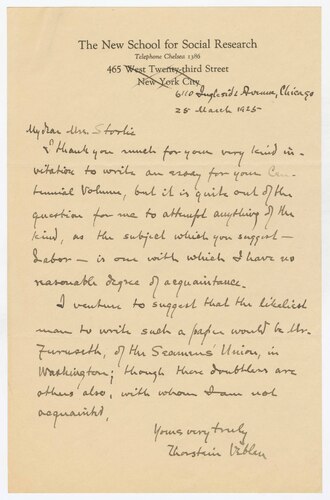 The New School for Social Research
Telephone Chelsea 1386
465 West Twenty-third Street
New York City
6110 Ingleside Avenue, Chicago
25 March 1925
My dear Mrs. Storlie
I thank you much for your very kind in-
vitation to write an essay for your Cen-
tennial Volume, but it is quite out of the
question for me to attempt anything of the
kind, as the subject which you suggest —
Labor — is one with which I have no
reasonable degree of acquaintance.
I venture to suggest that the likeliest
man to write such a paper would be Mr.
Furuseth, of the Seamens' Union, in
Washington; though there doubtless are
others also, with whom I am not
acquainted.
Yours very truly
Thorstein Veblen